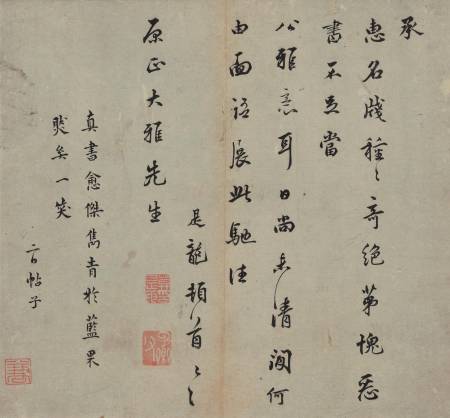 承
惠名牋種〻奇絶第愧惡
書不足當
公雅意耳日尚未清何
由面話展此馳
原正大雅先生
是龍頓首〻〻
真書愈傑雋青於藍果
然矣一笑
帖子